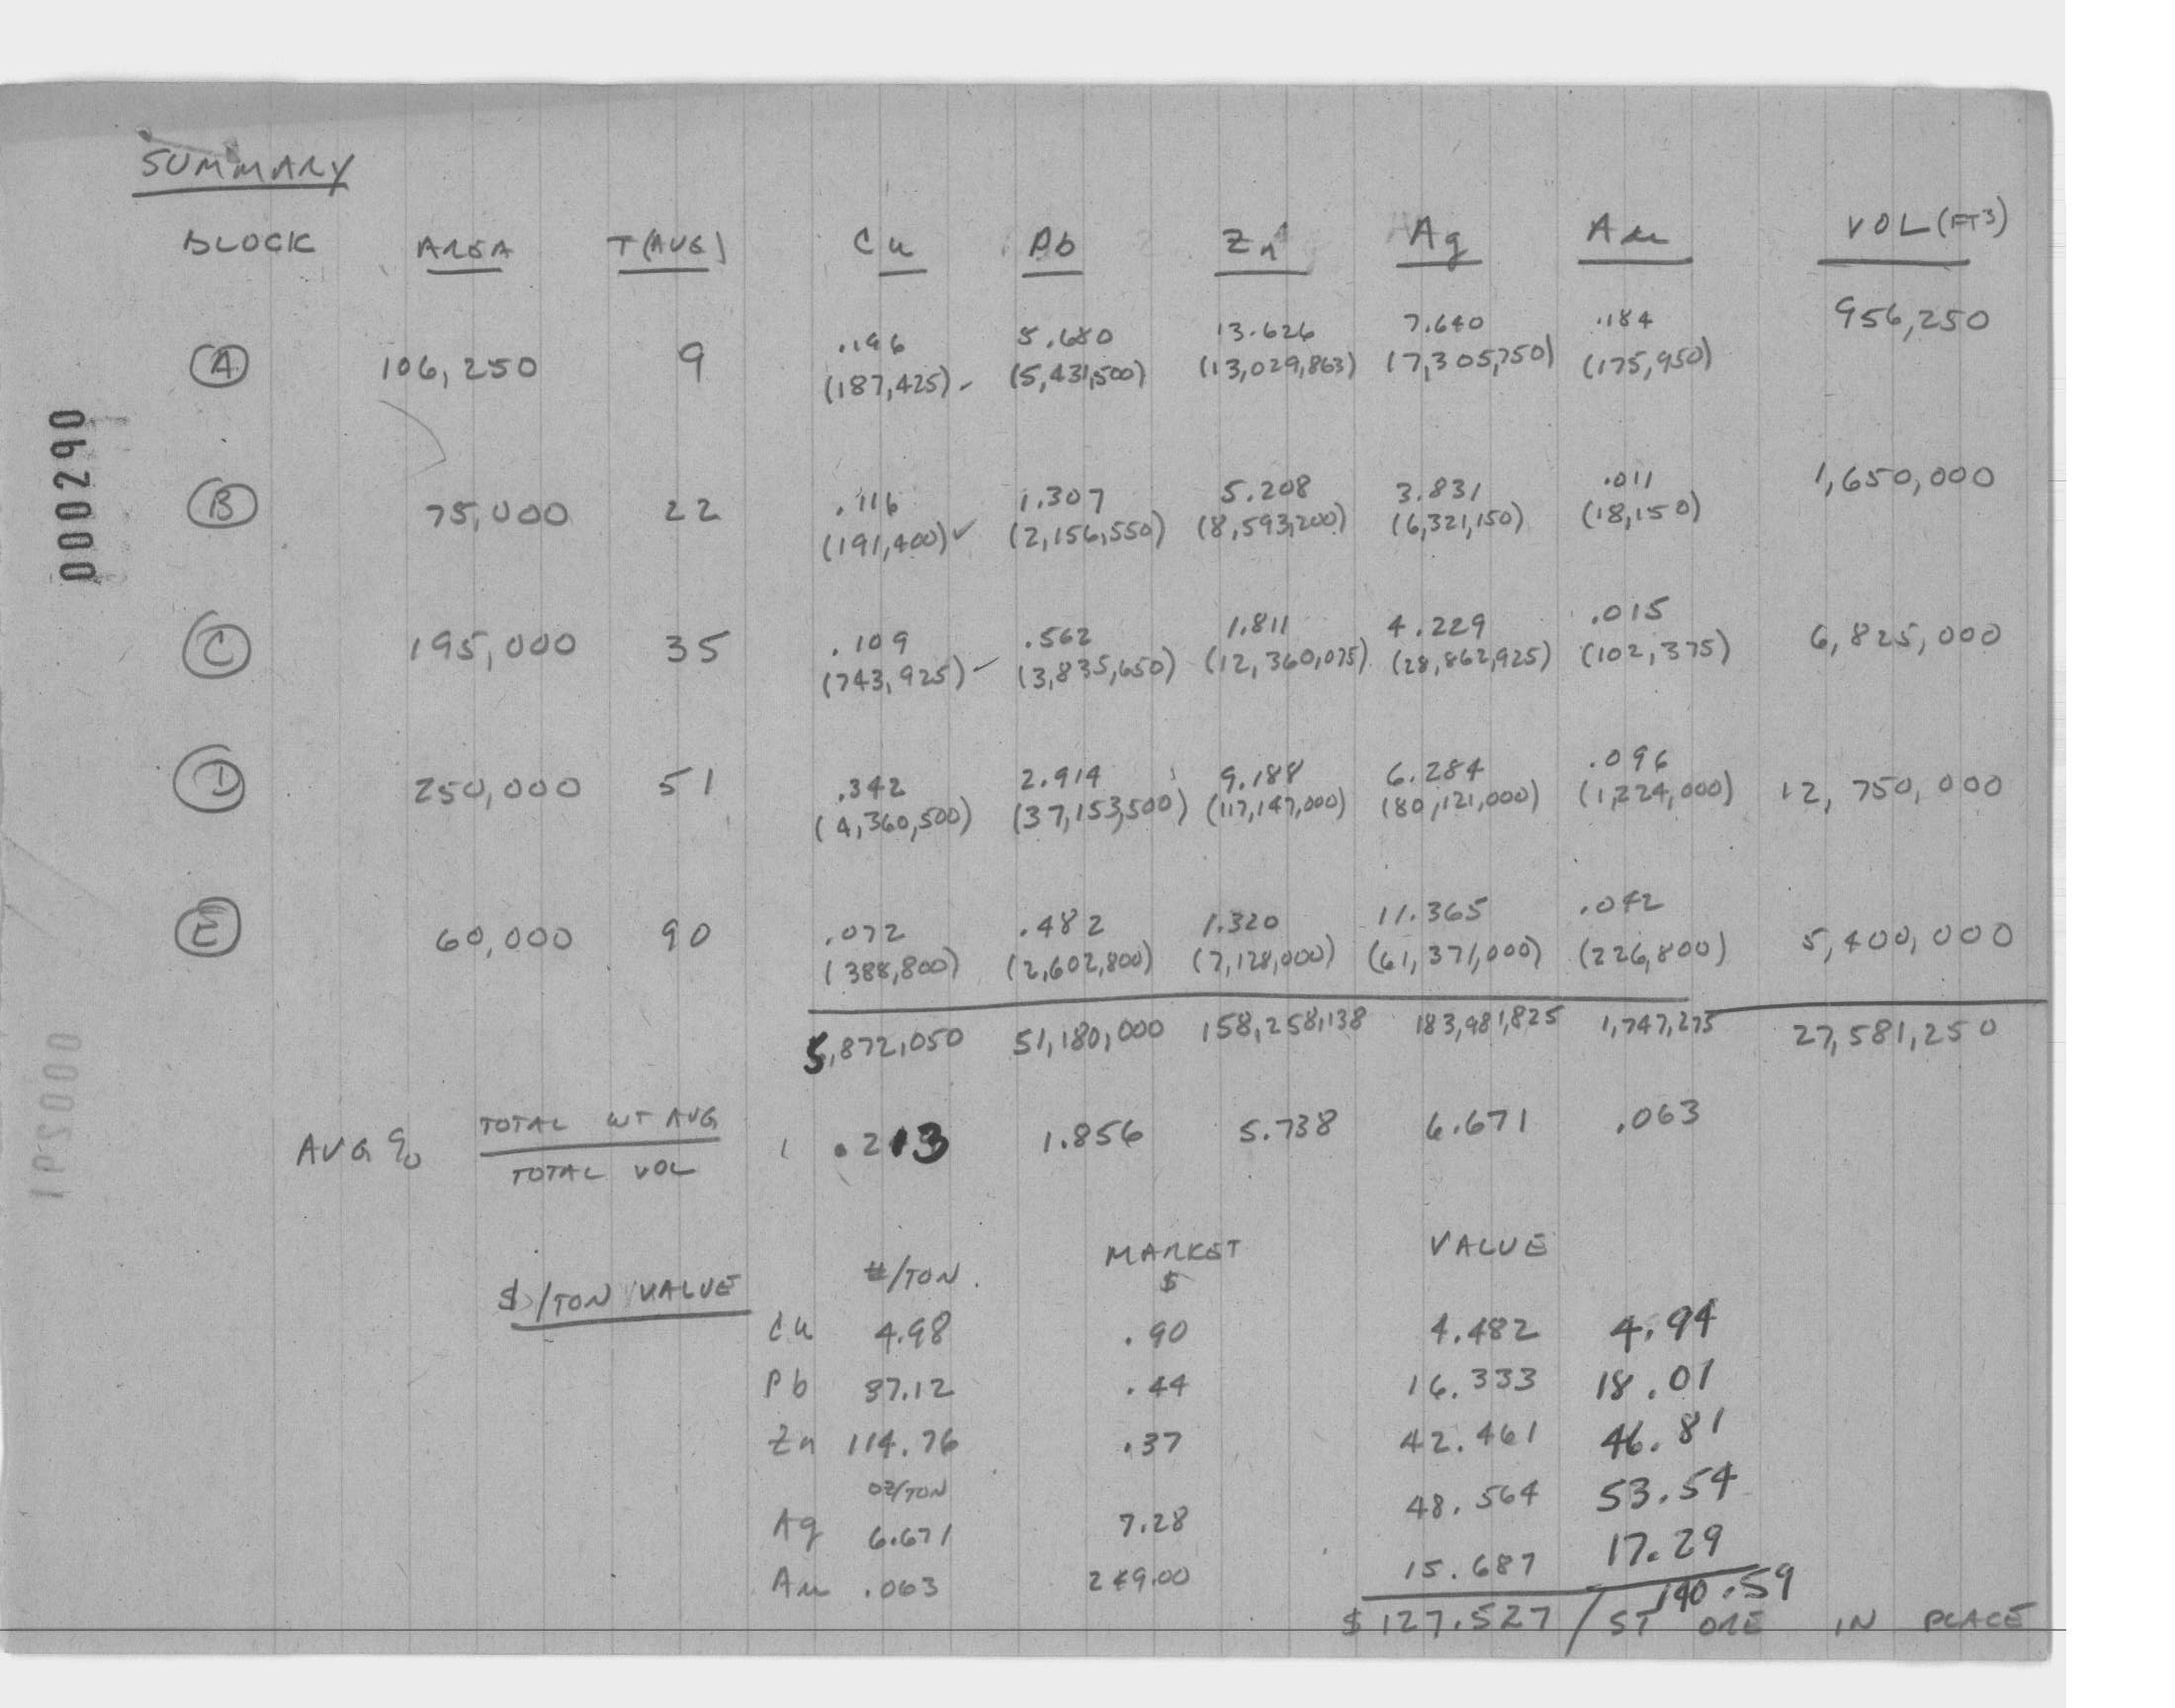 SUMMARY
BLOCK AREA T(AVG) Cu Pb Zn Ag Au VOL (FT3)
.196 5.680 13.626 7.640 .184 956,250
A 106,250 9 (187,425) (5,431,500) (13,029,863) (7,305,750) (175,950)
.116 1.307 5.208 3.831 .011 1,650,000
B 75,000 22 (191,400) ✓ (2,156,550) (8,593,200) (6,321,150) (18,150)
.109 .562 1.811 4.229 .015 6,825,000
C 195,000 35 (743,925) (3,835,650) (12,360,075) (28,862,925) (102,375)
.342 2.914 9.188 6.284 .096
D 250,000 51 (4,360,500) (37,153,500) (117,147,000) (80,121,000) (1,224,000) 12,750,000
.072 .482 1.320 11.365 .042
E 60,000 90 (388,800) (2,602,800) (7,128,000) (61,371,000) (226,800) 5,400,000
5,872,050 51,180,000 158,258,138 183,981,825 1,747,275 27,581,250
AVG % TOTAL WT AVG .213 1.856 5.738 6.671 .063
TOTAL VOL
$/TON VALUE #/TON MARKET $ VALUE
Cu 4.98 .90 4.482 4.94
Pb 37.12 .44 16.333 18.01
Zn 114.76 .37 42.461 46.81
OZ/TON
Ag 6.671 7.28 48.564 53.54
Au .063 249.00 15.687 17.29
140.59
$127.527 / ST ORE IN PLACE
000290
000291